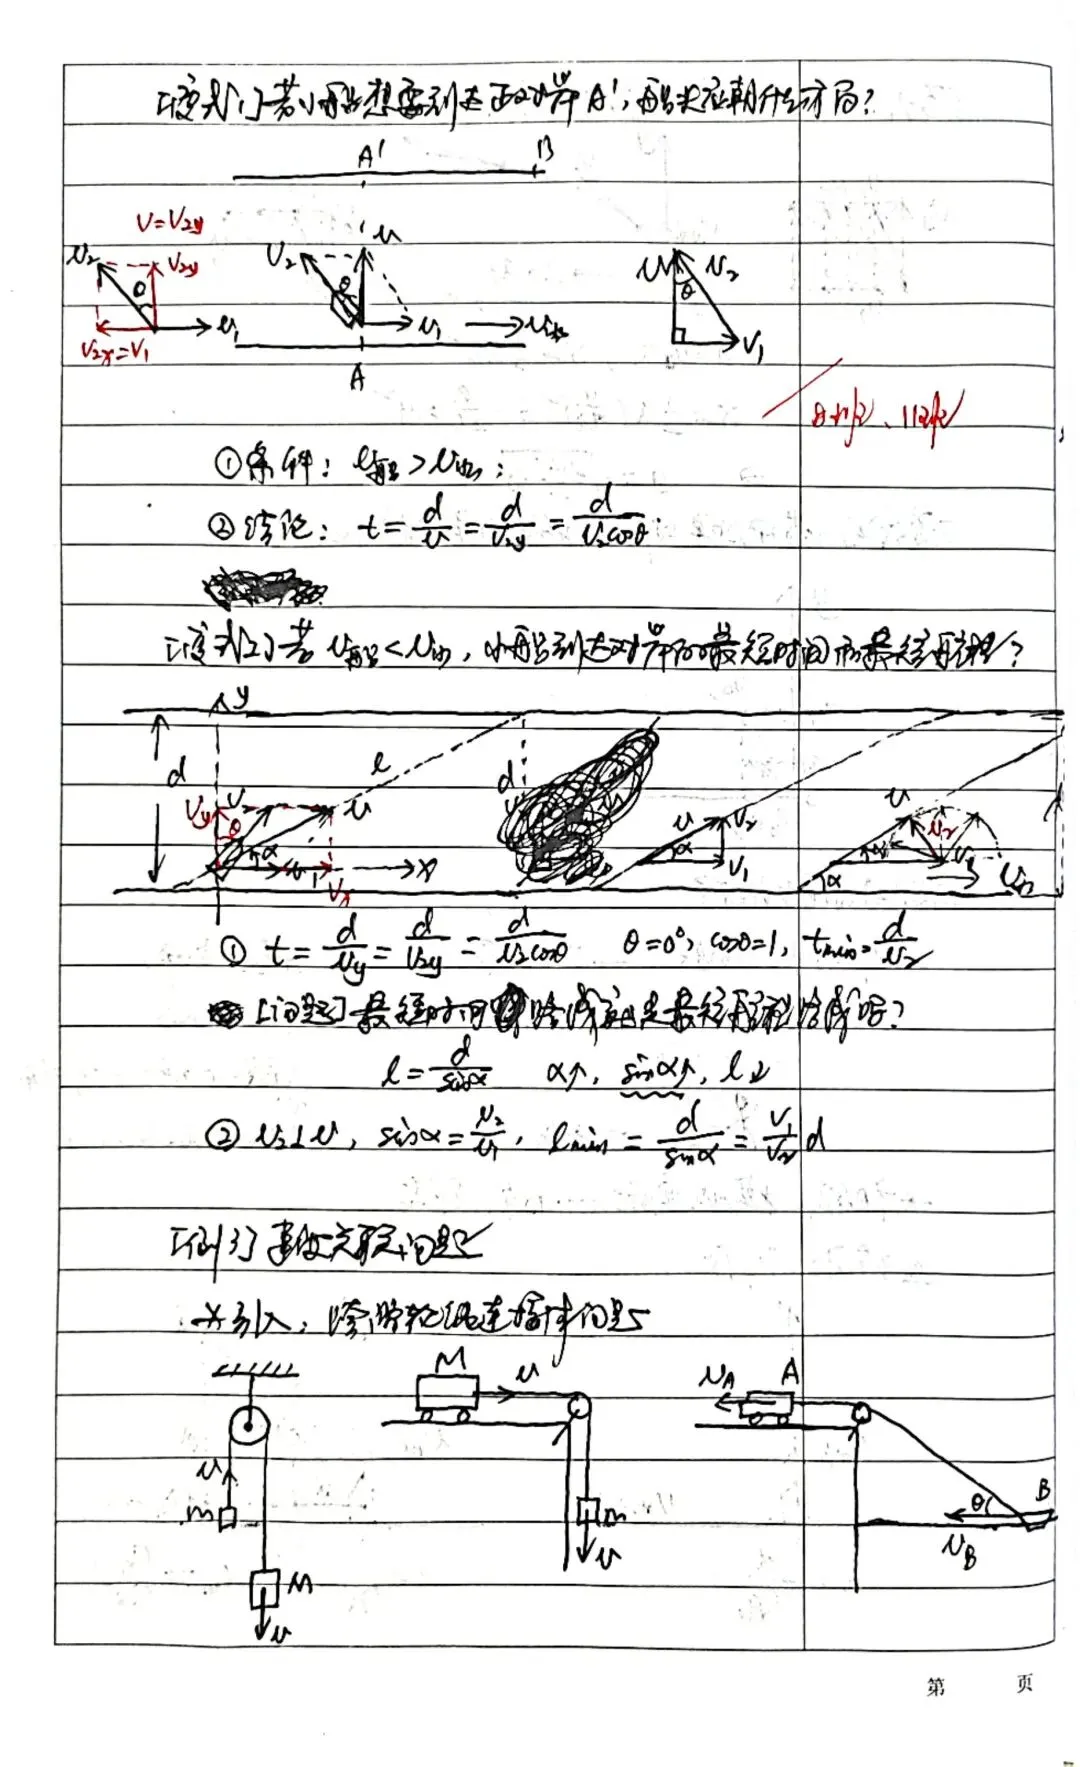 [变式1]若小船想要到达正对岸A',船头应朝什么方向?
A' B
V=V₂y
v₂ V₂y θ v₁ V₂ₓ=V₁
V₂ θ v v₁ v水
A
v v₂ θ V₁
①条件: v船>v水;
②结论: t=d/v=d/V₂y=d/(v₂cosθ)
[变式2]若v船<v水,小船到达对岸的最短时间和最短航程?
y d l Vy V₂ θ v α v₁ Vₓ x
d
v V₂ α V₁
v v₂ α V₁ v水 α
① t=d/vy=d/V₂y=d/(v₂cosθ) θ=0°, cosθ=1, tmin=d/v₂
[问题]最短时间恰成就是最短航程恰成吗?
l=d/sinα α↑, sinα↑, l↓
② v₂⊥v, sinα=v₂/v₁, lmin=d/sinα=V₁/V₂ d
[例3]速度关联问题
引入: 跨滑轮绳连接体问题
v m M v
M v m v
vA A θ B vB
第 页